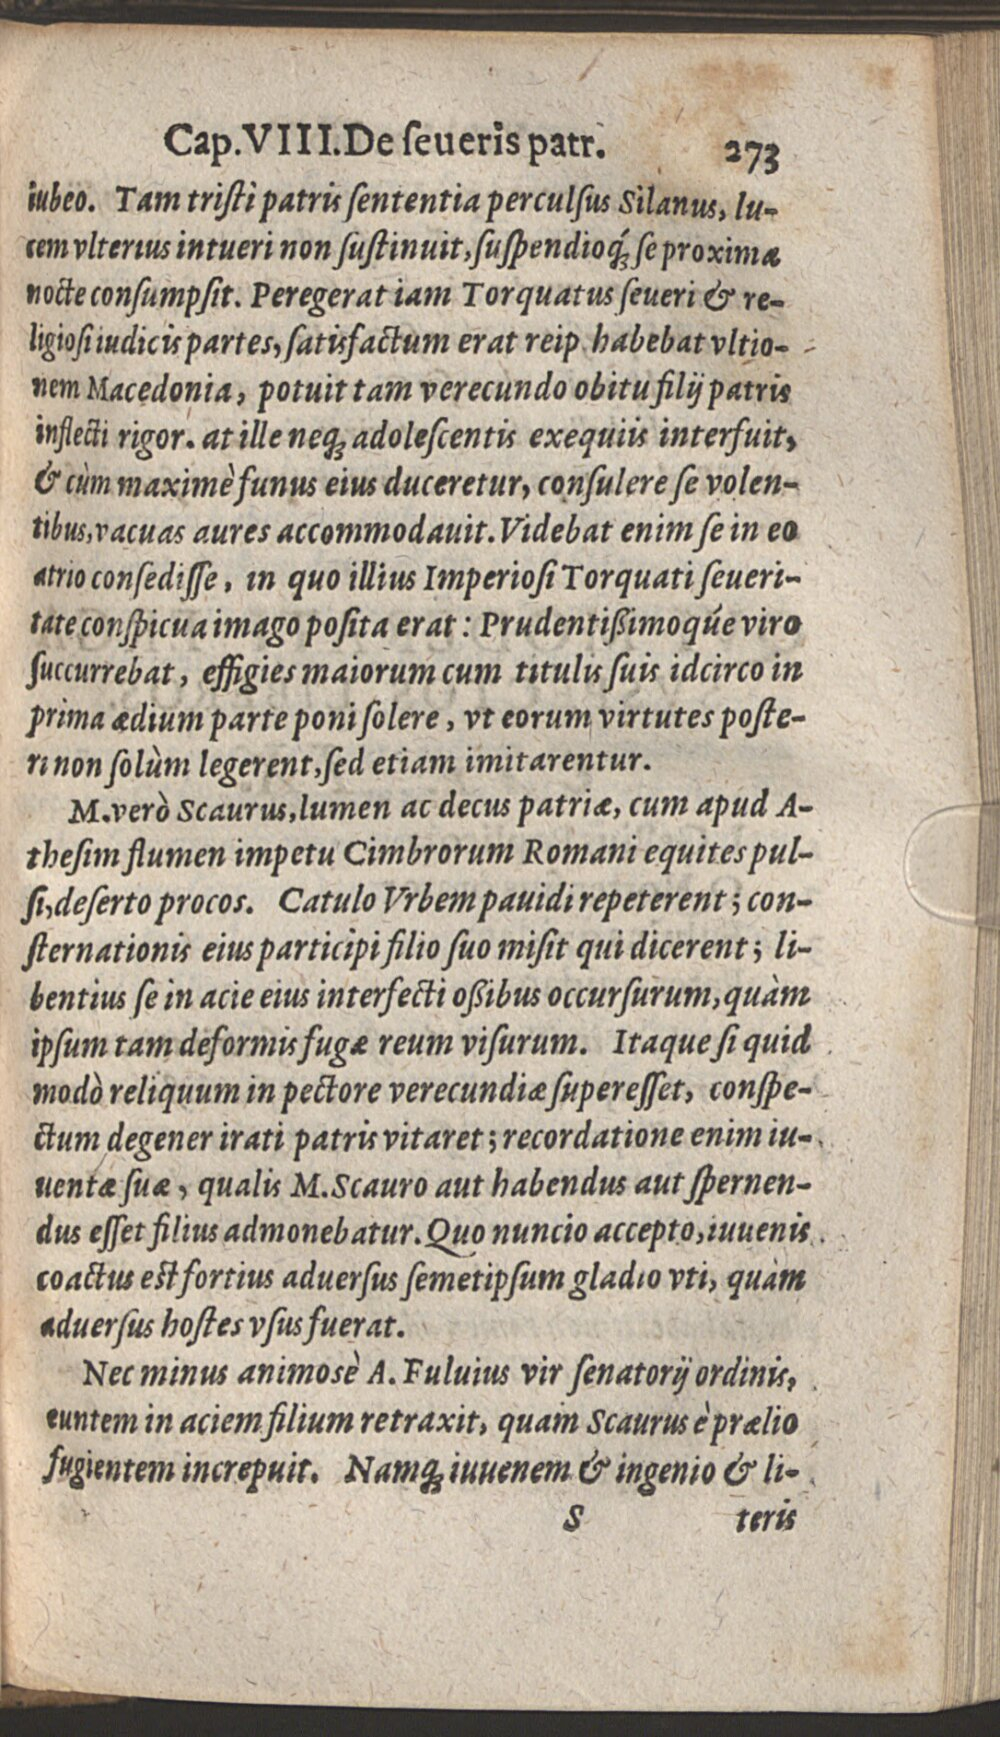 Cap.VIII.De ſeueris patr. 273
iubeo. Tam triſti patris ſententia perculſus Silanus, lu-
cem vlterius intueri non ſuſtinuit, ſuſpendioq́; ſe proxima
nocte conſumpſit. Peregerat iam Torquatus ſeueri & re-
ligioſi iudicis partes, ſatisfactum erat reip habebat vltio-
nem Macedonia, potuit tam verecundo obitu filij patris
inflecti rigor. at ille neq; adoleſcentis exequiis interfuit,
& cùm maximè funus eius duceretur, conſulere ſe volen-
tibus, vacuas aures accommodauit. Videbat enim ſe in eo
atrio conſediſſe, in quo illius Imperioſi Torquati ſeueri-
tate conſpicua imago poſita erat: Prudentißimoqúe viro
ſuccurrebat, effigies maiorum cum titulis ſuis idcirco in
prima ædium parte poni ſolere, vt eorum virtutes poſte-
ri non ſolùm legerent, ſed etiam imitarentur.
M. verò Scaurus, lumen ac decus patriæ, cum apud A-
theſim flumen impetu Cimbrorum Romani equites pul-
ſi, deſerto procos. Catulo Vrbem pauidi repeterent; con-
ſternationis eius participi filio ſuo miſit qui dicerent; li-
bentius ſe in acie eius interfecti oßibus occurſurum, quàm
ipſum tam deformis fugæ reum viſurum. Itaque ſi quid
modò reliquum in pectore verecundiæ ſupereſſet, conſpe-
ctum degener irati patris vitaret; recordatione enim iu-
uentæ ſuæ, qualis M. Scauro aut habendus aut ſpernen-
dus eſſet filius admonebatur. Quo nuncio accepto, iuuenis
coactus eſt fortius aduerſus ſemetipſum gladio vti, quàm
aduerſus hoſtes vſus fuerat.
Nec minus animosè A. Fuluius vir ſenatorij ordinis,
euntem in aciem filium retraxit, quam Scaurus è prælio
fugientem increpuit. Namq; iuuenem & ingenio & li-
S teris